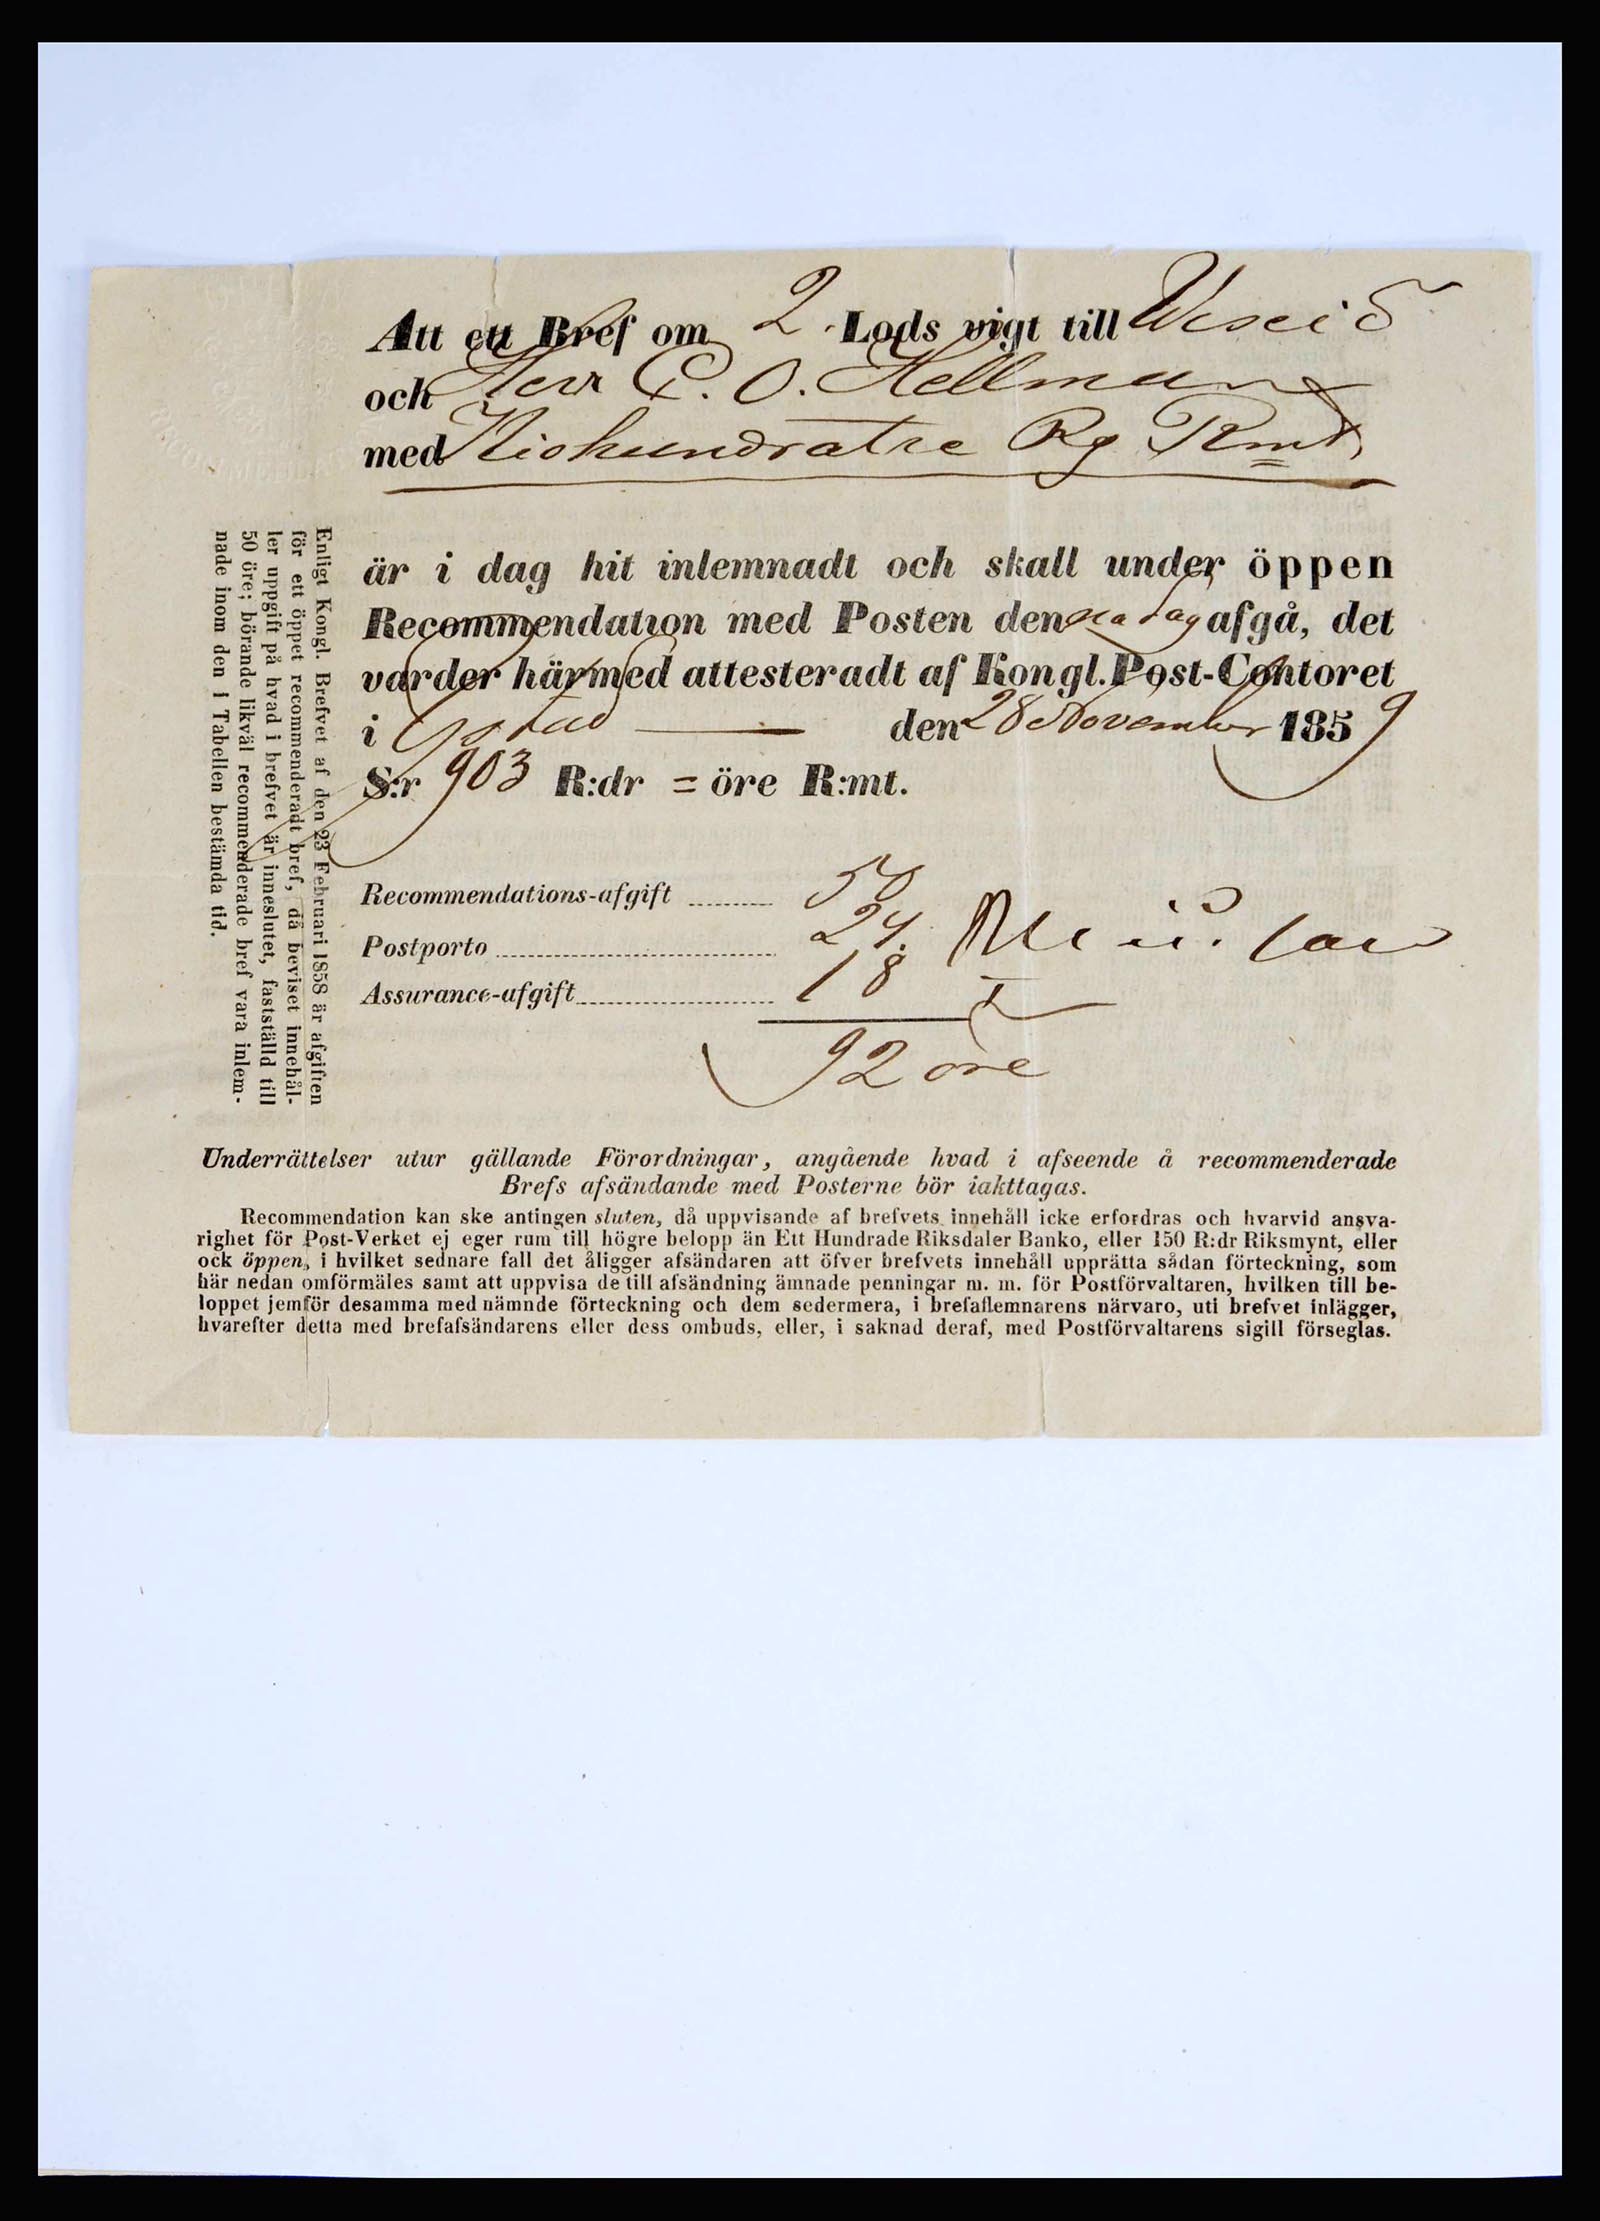 Att ett Bref om 2 Lods vigt till
och Herr C. O. Hellman
med Niohundratre Rg Rmt
är i dag hit inlemnadt och skall under öppen
Recommendation med Posten den afgå, det
varder härmed attesteradt af Kongl. Post-Contoret
i Ystad den 28 November 1859
S:r 903 R:dr = öre R:mt.
Recommendations-afgift 50
Postporto 24.
Assurance-afgift 18
92 öre
Enligt Kongl. Brefvet af den 23 Februari 1858 är afgiften
för ett öppet recommenderadt bref, då beviset innehål-
ler uppgift på hvad i brefvet är inneslutet, fastställd till
50 öre; börande likväl recommenderade bref vara inlem-
nade inom den i Tabellen bestämda tid.
Underrättelser utur gällande Förordningar, angående hvad i afseende å recommenderade
Brefs afsändande med Posterne bör iakttagas.
Recommendation kan ske antingen sluten, då uppvisande af brefvets innehåll icke erfordras och hvarvid ansva-
righet för Post-Verket ej eger rum till högre belopp än Ett Hundrade Riksdaler Banko, eller 150 R:dr Riksmynt, eller
ock öppen, i hvilket sednare fall det åligger afsändaren att öfver brefvets innehåll upprätta sådan förteckning, som
här nedan omförmäles samt att uppvisa de till afsändning ämnade penningar m. m. för Postförvaltaren, hvilken till be-
loppet jemför desamma med nämnde förteckning och dem sedermera, i brefaflemnarens närvaro, uti brefvet inlägger,
hvarefter detta med brefafsändarens eller dess ombuds, eller, i saknad deraf, med Postförvaltarens sigill förseglas.